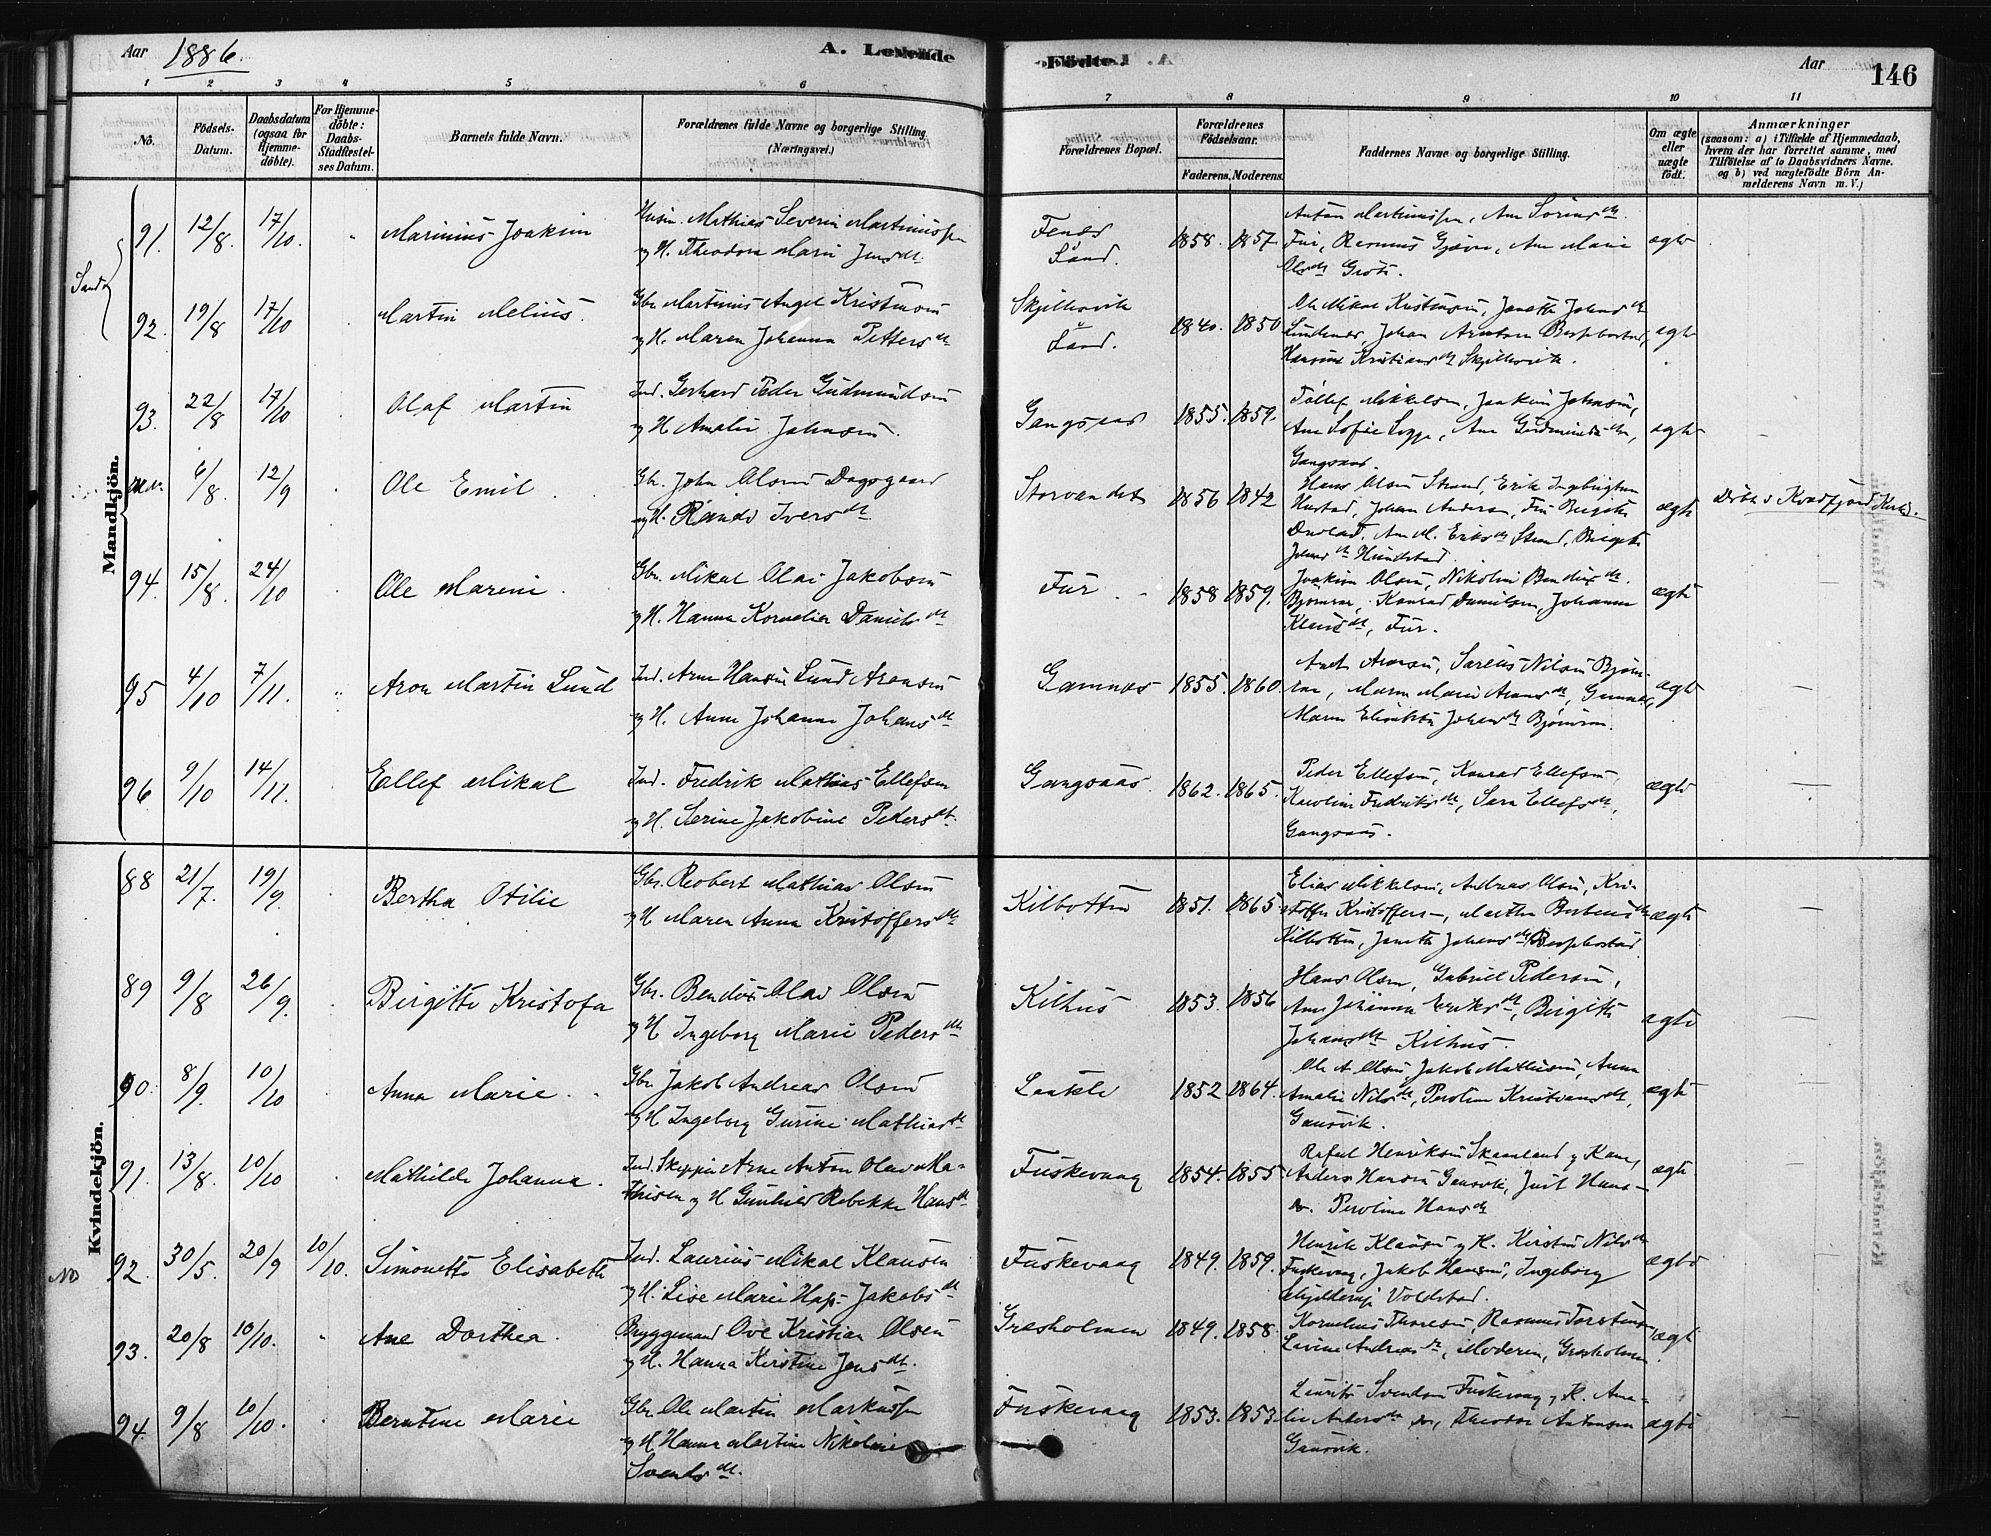 Aar 1886. A. Levende Födte. Aar 146
1 2 3 4 5 6 7 8 9 10 11
No. Födsels-Datum. Daabsdatum (ogsaa for Hjemmedöbte). For Hjemmedöbte: Daabs-Stadfæstelses Datum. Barnets fulde Navn. Forældrenes fulde Navne og borgerlige Stilling. (Næringsvei.) Forældrenes Bopæl. Forældrenes Födselsaar. Faderens. Moderens. Faddernes Navne og borgerlige Stilling. Om ægte eller uægte födt. Anmærkninger (saasom: a) i Tilfælde af Hjemmedaab, hvem der har forrettet samme, med Tilföielse af to Daabsvidners Navne. og b) ved uægtefödte Börn Anmelderens Navn m. V.)
Mandkjön.
Sand
91. 12/8. 17/10. Marinius Joakim Husm. Mathias Severin Martinussen
og H. Theodora Marie Jensdt. Fenes Sand. 1858. 1857. Anton Martinussen, Ane Sörensdt.
Fur, Rasmus Gjøvre, Ane Marie
Olsdt Grøts. ægte
92. 19/8 17/10 Martin Melius. Gbr. Martinus Angel Kristensen
og H. Maren Johanna Pettersdt Skjellesvik Sand. 1840. 1850 Ole Mikal Kristensen, Janetta Johansdt
Lundenes, Johan Arntsen Bessebostad,
Hansine Kristiansdt Skjellesvik. ægte
93. 22/8 17/10 Olaf Martin Ind. Gerhard Peder Gudmundsen
og H Amalie Johnsen. Gangsaas 1855. 1859. Tollef Mikkelsen, Joakim Johnsen,
Ane Sofie, Ane Gudmundsdtr,
Gangsaas. ægte
6/8. 12/9 Ole Emil Gbr. John Olsen Dagsgaard
og H. Randi Iversdt Storvandet 1856 1842 Hans Olsen Strand, Erik Ingebrigtsen
Hustad, Johan Andersen,
Ane M. Eriksdt Strand, Birgitte
Johnsdt Hundstad. ægte Döbt i Kvædfjord Kirke.
94. 15/8. 24/10 Ole Mareni Gbr. Mikal Olai Jakobsen
og H. Hanna Kornelia Danielsdt Fur 1858 1859. Joakim Olsen, Nikoline Bendixsdt.
Bjørnraa, Konrad Danielsen, Johanna
Klausdt, Fur. ægte
95 4/10 7/11. Aron Martin Lund Ind. Arne Hansen Lund Aronsen
og H. Anne Johanna Johansdt Gamnes 1855 1860 Aronsen, Sarelius Nilsen Bjørn-
raa, Maren Marie Aronsdt, Gamnes,
Maren Elisabeth Johansdt Bjørnraa. ægte
96 9/10 14/11. Ellef Mikal Ind. Fredrik Mathias Ellefsen
og H. Serine Jakobine Pedersdt. Gangsaas. 1862. 1865. Peder Ellefsen, Konrad Ellefsen,
Karoline Fredriksdt, Sara Ellefsdt,
Gangsaas. ægte
Kvindekjön.
88 21/7. 19/9. Bertha Otilie Gbr. Robert Mathias Olsen
og H Maren Anna Kristoffersdt Kilbotten 1851. 1865. Elias Mikkelsen, Andreas Olsen, Kri-
stoffer Kristoffers—, Martha
Kilbotten, Janetta Johansdt Bessebostad ægte
89 9/8 26/9. Birgitte Kristofa Gbr. Bendix Olai Olsen
og H Ingeborg Marie Pedersdt Kilhus 1853. 1856 Hans Olsen, Gabriel Pedersen,
Ane Johanna Eriksdt, Birgitte
Johansdt Kilhus. ægte
90. 8/9. 10/10 Anna Marie Gbr. Jakob Andreas Olsen
og H Ingeborg Gurine Mathiasdt 1852 1864. Ole A. Olsen Jakob Mathisen, Anna
Amalie Nilsdt, Peroline Kristiansdt,
Gausvik. ægte
91. 13/8. 10/10 Mathilde Johanna. Ind. Skipper Arne Anton Olav Ma-
thisen og H Gunhild Rebekke Hansdt Fuskevaag 1854. 1855 Rafael Henriksen Skaanland og Kone,
Anders Hansen Gausvik, Jurit Hans-
dr. Peroline Hansdt ægte
No 92. 30/5. 20/9 10/10. Simonette Elisabeth Ind. Laurius Mikal Klausen
og H. Lise Marie Hass Jakobsdt Fuskevaag 1849. 1859. Henrik Klausen og H. Kirsten Nilsdt
Fuskevaag, Jakob Hansen, Ingeborg
Voldstad. ægte
93. 20/8 10/10. Ane Dorthea. Bryggemand Ove Kristian Olsen
og H. Hanna Kirstine Jensdt. Græsholmen 1849. 1858. Kornelius Thoresen, Rasmus Torstens.
Levine Andreasdt, Moderen, Græsholmen. ægte
94. 9/8 10/10. Berntine Marie Gbr Ole Martin Markussen
og H Hanna Martine Nikoline
Svendsdt. Fuskevaag 1853. 1853. Laurits Svendsen Fuskevaag og H. Ama-
lie Andersdt, Theodor Antonsen
Gausvik. ægte